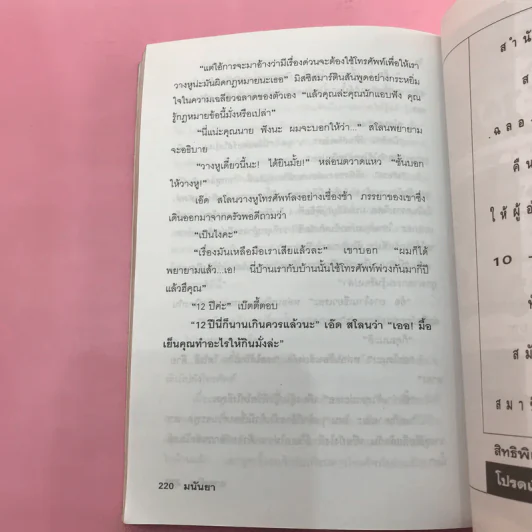 "แต่ไอ้การจะมาอ้างว่ามีเรื่องด่วนจะต้องใช้โทรศัพท์เพื่อให้เรา
วางหูน่ะมันผิดกฎหมายนะเธอ" มิสซิสมาร์ตินสันพูดอย่างกระหยิ่ม
ใจในความเฉลียวฉลาดของตัวเอง "แล้วคุณล่ะคุณนักแอบฟัง คุณ
รู้กฎหมายข้อนี้มั่งหรือเปล่า"
"นี่แน่ะคุณนาย ฟังนะ ผมจะบอกให้ว่า..." สโลนพยายาม
จะอธิบาย
"วางหูเดี๋ยวนี้นะ! ได้ยินมั้ย!" หล่อนตวาดแหว "ชั้นบอก
ให้วางหู!"
เอ๊ด สโลนวางหูโทรศัพท์ลงอย่างเชื่องช้า ภรรยาของเขาซึ่ง
เดินออกมาจากครัวพอดีถามว่า
"เป็นไงคะ"
"เรื่องมันเหลือมือเราเสียแล้วละ" เขาบอก "ผมก็ได้
พยายามแล้ว...เอ! นี่บ้านเรากับบ้านนั้นใช้โทรศัพท์พ่วงกันมากี่ปี
แล้วฮึคุณ"
"12 ปีค่ะ" เบ๊ตตี้ตอบ
"12 ปีนี่ก็นานเกินควรแล้วนะ" เอ๊ด สโลนว่า "เออ! มื้อ
เย็นคุณทำอะไรให้กินมั่งล่ะ"
220 มนันยา
ให้ผู้
10
สมั
สิทธิพิ